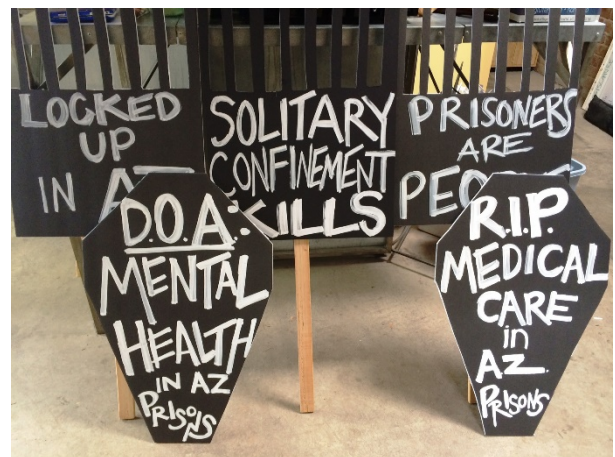 LOCKED
UP
IN AZ
SOLITARY
CONFINEMENT
KILLS
PRISONERS
ARE
PEOPLE
D.O.A.:
MENTAL
HEALTH
IN AZ
PRISONS
R.I.P.
MEDICAL
CARE
in
AZ.
PRISONS